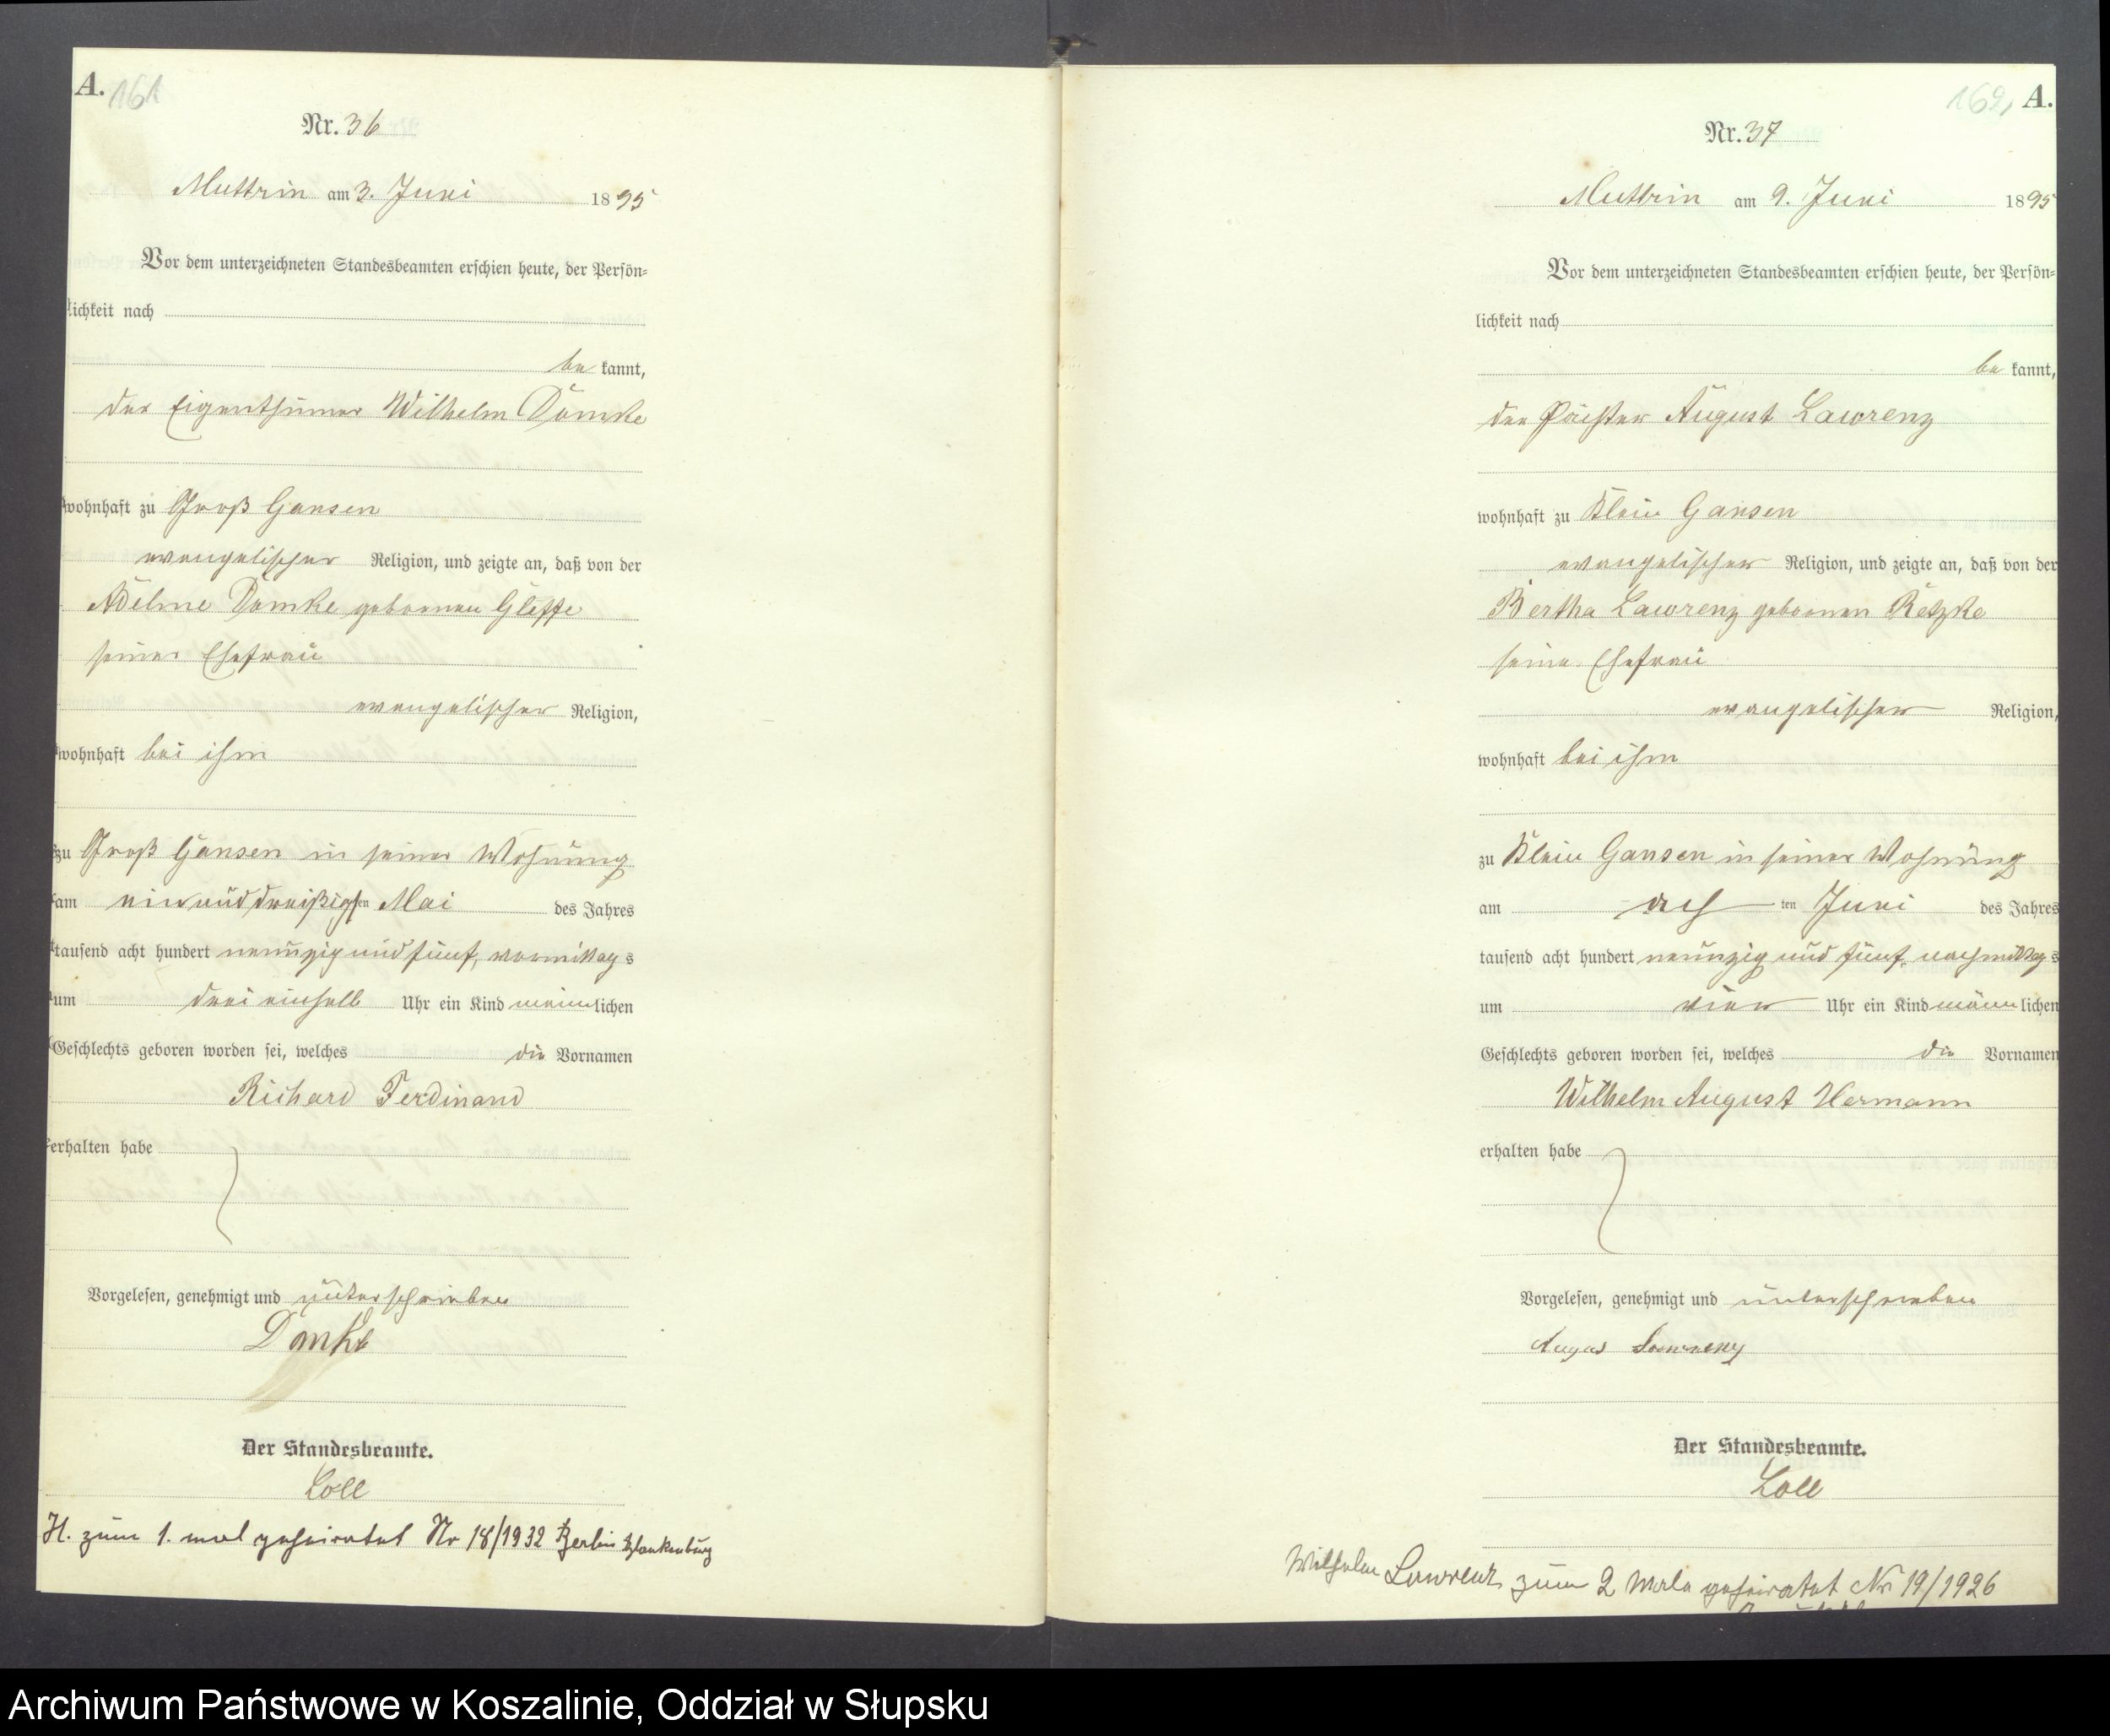 A. 161
Nr. 36
Muttrin am 3. Juni 1895
Vor dem unterzeichneten Standesbeamten erschien heute, der Persön=
lichkeit nach
be kannt,
der Eigenthümer Wilhelm Domke
wohnhaft zu Groß Gansen
evangelischer Religion, und zeigte an, daß von der
Domke geborenen
seiner Ehefrau
evangelischer Religion,
wohnhaft bei ihm
zu Groß Gansen in seiner Wohnung
am einunddreißigsten Mai des Jahres
tausend acht hundert neunzig und fünf, vormittags
um drei einhalb Uhr ein Kind männlichen
Geschlechts geboren worden sei, welches die Vornamen
Richard Ferdinand
erhalten habe
Vorgelesen, genehmigt und unterschrieben
Domke
Der Standesbeamte.
Loll
H. zum 1. mal geheiratet Nr 18/1932 Berlin Blankenburg
169, A.
Nr. 37
Muttrin am 9. Juni 1895
Vor dem unterzeichneten Standesbeamten erschien heute, der Persön=
lichkeit nach
be kannt,
der August Lawrenz
wohnhaft zu Klein Gansen
evangelischer Religion, und zeigte an, daß von der
Bertha Lawrenz geborenen Retzke
seine Ehefrau
evangelischer Religion,
wohnhaft bei ihm
zu Klein Gansen in seiner Wohnung
am ach ten Juni des Jahres
tausend acht hundert neunzig und fünf, nachmittags
um vier Uhr ein Kind männlichen
Geschlechts geboren worden sei, welches die Vornamen
Wilhelm August Hermann
erhalten habe
Vorgelesen, genehmigt und unterschrieben
Augus Lawrenz
Der Standesbeamte.
Loll
Wilhelm Lawrenz zum 2 Male geheiratet Nr 19/1926
Archiwum Państwowe w Koszalinie, Oddział w Słupsku